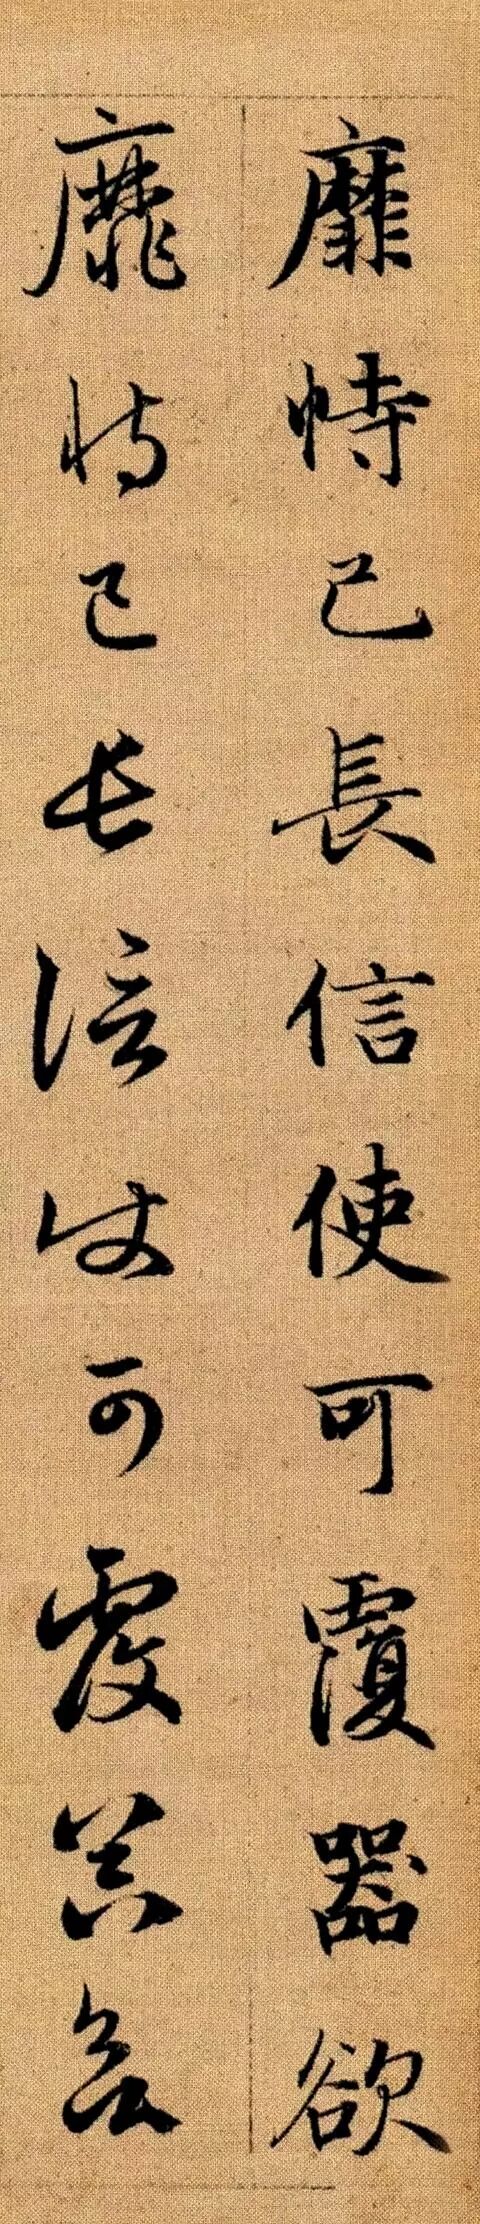 靡恃己長信使可覆器欲
靡恃己長信使可覆器欲